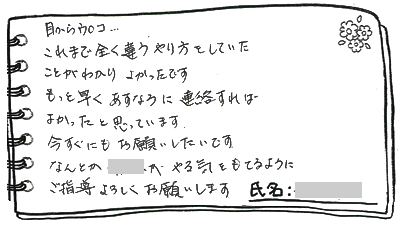 目からウロコ…
これまで全く違うやり方をしていた
ことがわかりよかったです
もっと早くあすなろに連絡すれば
よかったと思っています.
今すぐにもお願いしたいです
なんとか が やる気をもてるように
ご指導よろしくお願いします 氏名: